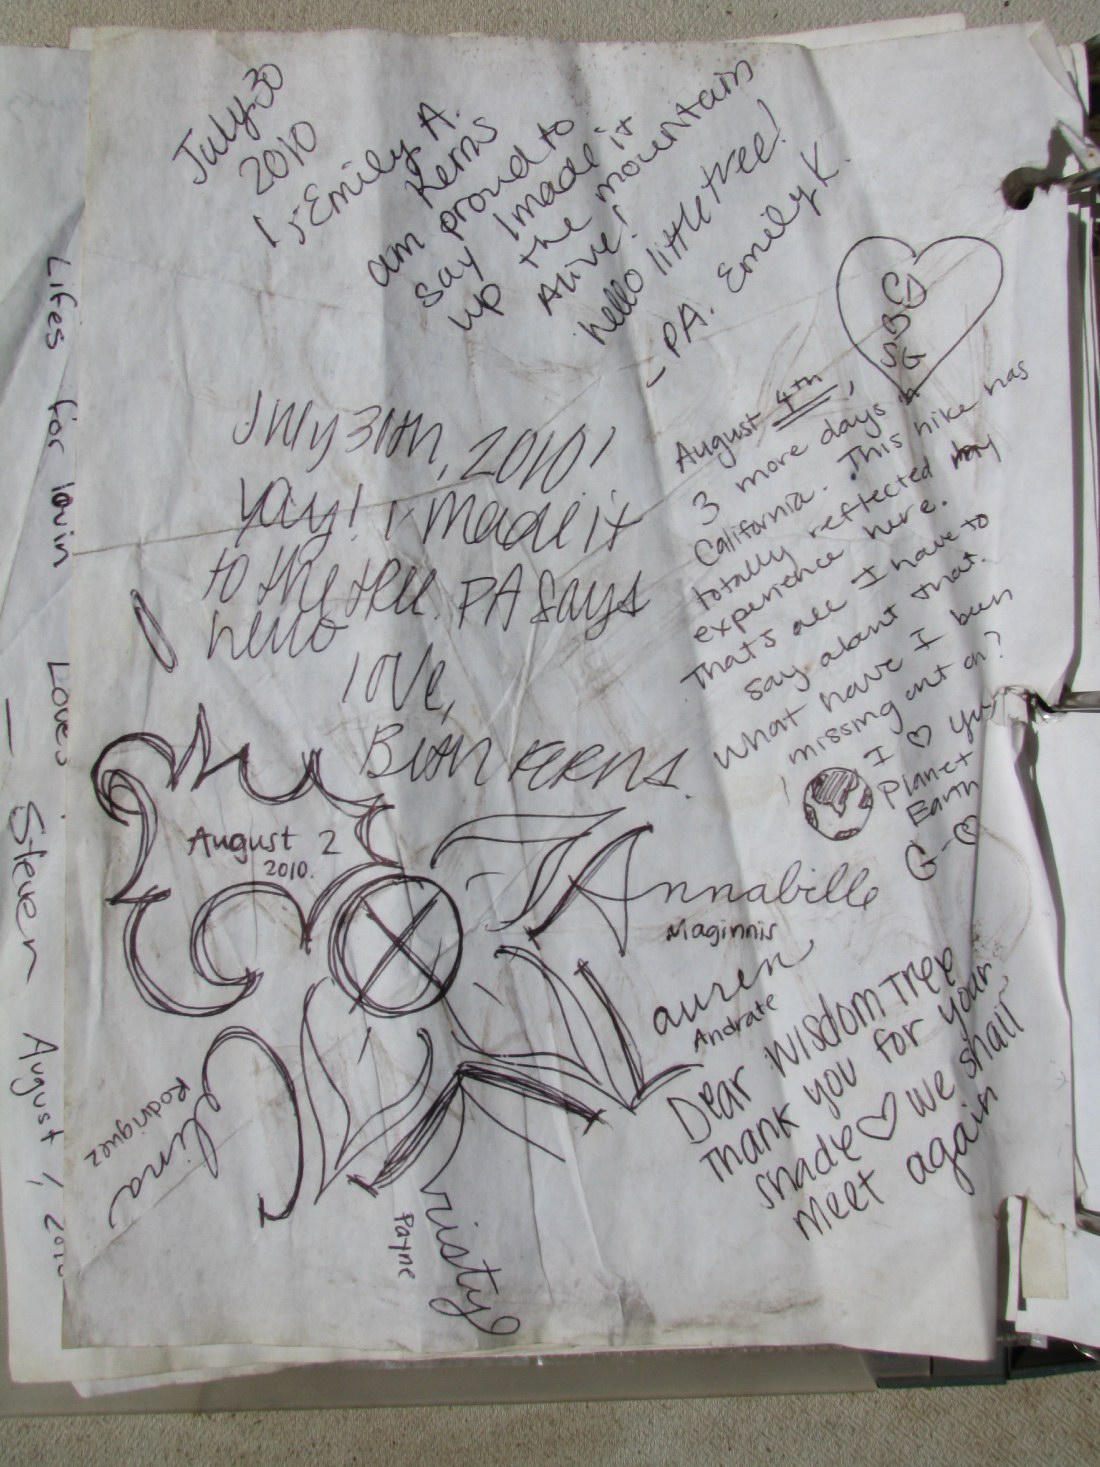 July 30
2010
I, Emily A.
Kerns
am proud to
say I made it
up the mountain
Alive!
hello little tree!
- PA. Emily K.
July 31th, 2010!
yay! i made it
to the tree. PA says
hello
love,
Beth Kerns.
August 4th,
3 more days in
California. This hike has
totally reflected my
experience here.
That's all I have to
say about that.
What have I been
missing out on?
I ♡ you
Planet
Earth
G-♡
August 2
2010.
Annabille
Maginnis
Lauren
Andrate
Kristy
Payne
Elina
Rodriguez
Dear Wisdom Tree
Thank you for your
shade ♡ we shall
meet again
Lifes for lovin Loves
— Steven August 1, 2010